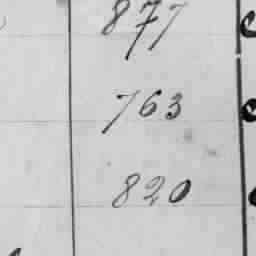 877
763
820